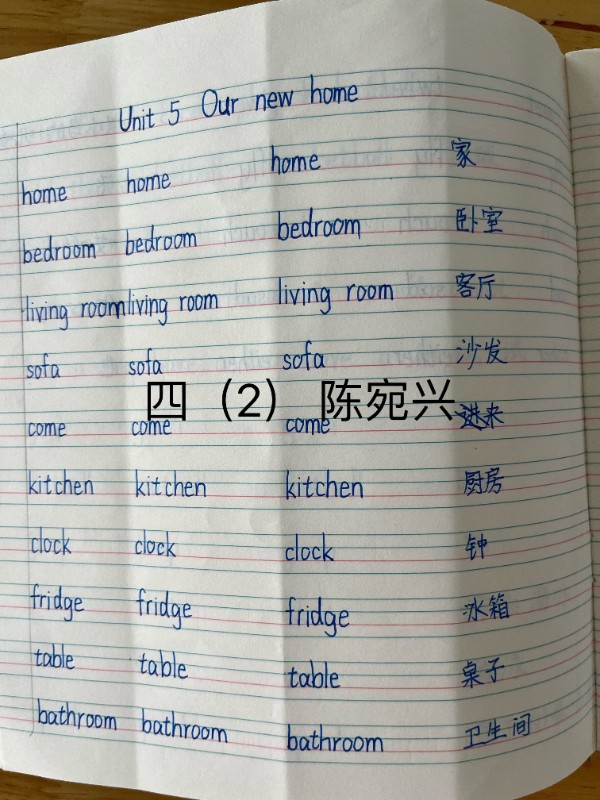 Unit 5 Our new home
home home home 家
bedroom bedroom bedroom 卧室
living room living room living room 客厅
sofa sofa sofa 沙发
四（2） 陈宛兴
come come come 进来
kitchen kitchen kitchen 厨房
clock clock clock 钟
fridge fridge fridge 冰箱
table table table 桌子
bathroom bathroom bathroom 卫生间